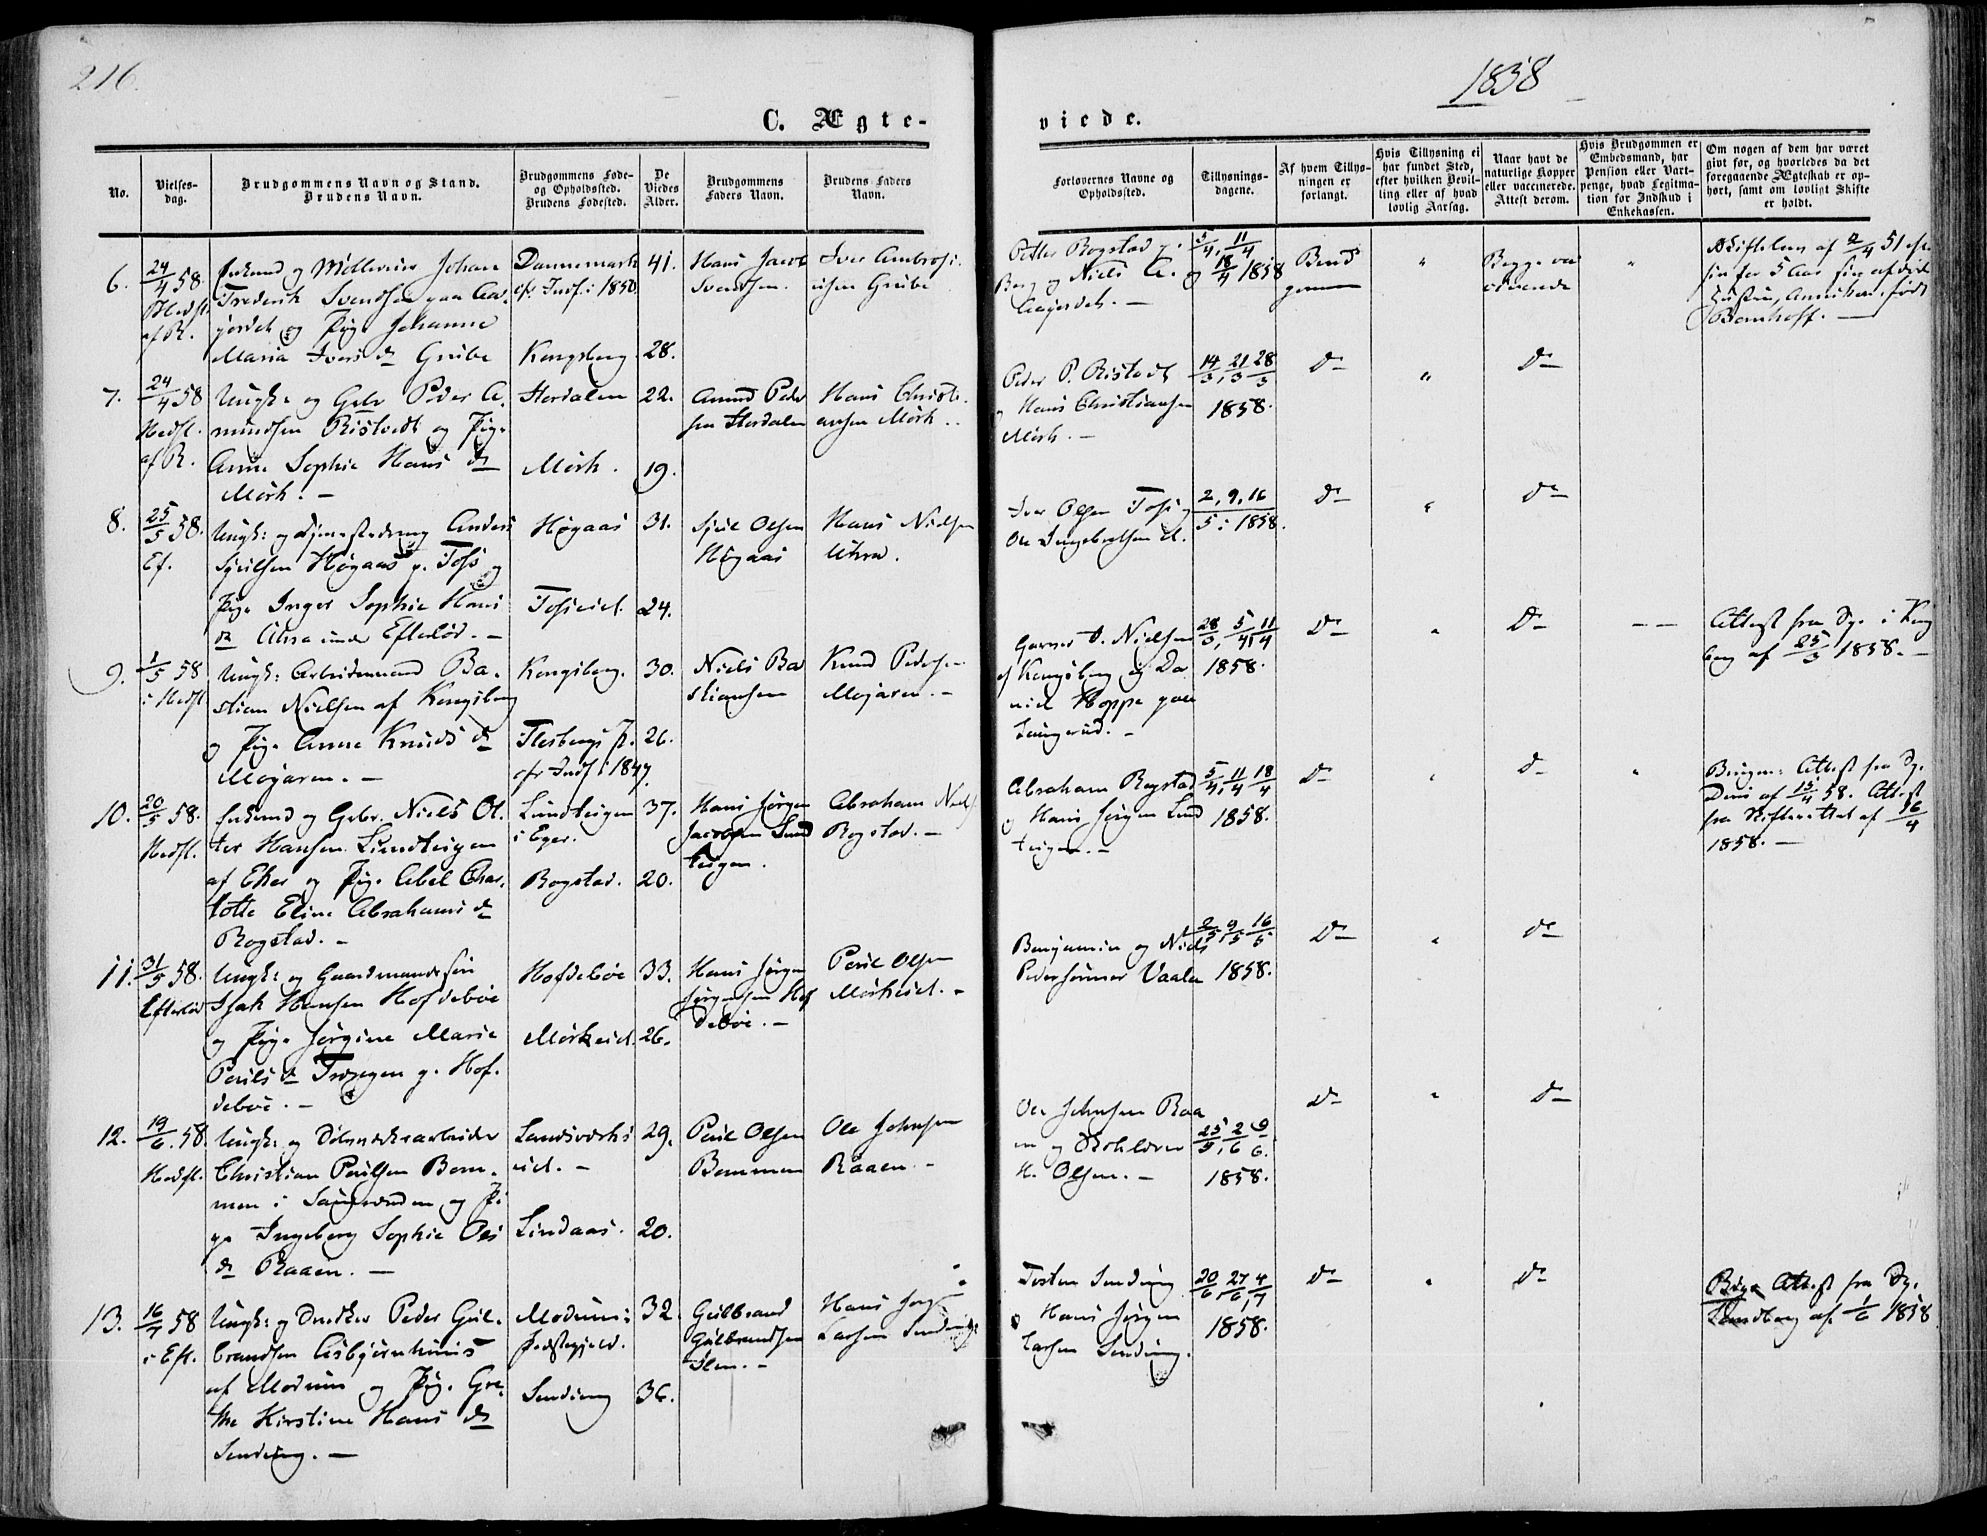 216.
1858
C. Ægte-
viede.
No.
Vielses-
dag.
Brudgommens Navn og Stand.
Brudens Navn.
Brudgommens Føde-
og Opholdssted.
Brudens Fødested.
De
Viedes
Alder.
Brudgommens
Faders Navn.
Brudens Faders
Navn.
Forlovernes Navne og
Opholdssted.
Tillysnings-
dagene.
Af hvem Tillys-
ningen er
forlangt.
Hvis Tillysning ei
har fundet Sted,
efter hvilken Bevil-
ling eller af hvad
lovlig Aarsag.
Naar havt de
naturlige Kopper
eller vaccinerede.
Attest derom.
Hvis Brudgommen er
Embedsmand, har
Pension eller Vart-
penge, hvad Legitima-
tion for Indskud i
Enkekassen.
Om nogen af dem har været
givt før, og hvorledes da det
foregaaende Ægteskab er op-
hørt, samt om lovligt Skifte
er holdt.
6.
24/4 58
Hedfl.
af R.
Enkemd og Møllerien Johan
Frederik Svendsen paa Aa-
jordet og Pige Johanne
Maria Ivers d. Grube
Dannemark
efr Indf: i 1850
Kongsberg
41.
28.
Hans Jacob
Svendsen.
Iver Ambrosi-
usen Grube
Petter Rogstad p.
Berg og Niels A.
Aajordet. —
5/4, 11/4
og 18/4 1858
Brud
gommen
"
Begge va
"
Skiftebrev af 2/4 51
sin for 5 Aar sin afdøde
Hustru, født
Bomhoff. —
7.
24/4 58
Hedfl.
af R.
Ungk: og Gbr Peder A-
mundsen Ristvedt og Pige
Anne Sophie Hans d.
Mörk. —
Stordalen
Mörk.
22.
19.
Amund Peder
sen Stordalen
Hans Christi-
ansen Mörk.
Peder P. Ristvedt
og Hans Christiansen
Mörk. —
14/3, 21/3 28/3
1858.
Do
"
Do
8.
25/5 58.
Ef.
Ungk: og Tjenestedreng Anders
Sjulsen Høgaas p. Foss og
Pige Inger Sophie Hans
d. under Efteløt. —
Høgaas
Fosseiet.
31.
24.
Sjul Olsen
Høgaas
Hans Nielsen
Iver Olsen Foss og
Ole Ingebretsen
2, 9, 16
5 i 1858.
Do
"
Do
9.
1/5 58
i Hedfl.
Ungk: Arbeidsmand Ba-
stian Nielsen af Kongsberg
og Pige Anne Knuds d.
Mojaren. —
Kongsberg.
Flesbergs P.
efr Indf i 1847.
30.
26.
Niels Ba
stiansen
Knud Peders.
Mojaren. —
Garver A. Nielsen
af Kongsberg og Da
niel Hoppe paa
28/3, 5/4, 11/4
1858.
Do
"
Do
— —
Attest fra Sp. i Kong
berg af 25/3 1858. —
10.
20/5 58.
Hedfl.
Enkemd og Gbr. Niels Ol-
ter Hansen Lundteigen
af Eker og Pige Abel Char-
lotte Eline Abrahams d.
Rogstad. —
Lundteigen
i Eger.
Rogstad.
37.
20.
Hans Jørgen
Jacobsen Lund
teigen.
Abraham Niels
Rogstad. —
Abraham Rogstad
og Hans Jørgen Lund
teigen. —
5/4, 11/4 18/4
1858.
Do
"
Do
"
Attest fra Sp.
af 15/4 58. Attest
fra Skifteretten af 16/4
1858. —
11.
31/5 58.
Efteløt
Ungk: og Gaardmandssøn
Isak Hansen Hofdeböe
og Pige Jørgine Marie
Pouls d. p. Hof-
deböe. —
Hofdeböe
Mörkeiet.
33.
26.
Hans Jørgen
Jørgensen Hof
deböe. —
Poul Olsen
Mörkeiet. —
Benjamin og Niels
Pedersønner Vaalen
2/5 9/5 16/5
1858.
Do
"
Do
12.
19/6. 58.
Hedfl.
Ungk: og Sølvværksarbeider
Christian Poulsen Bom-
men i Saugrenden og Pi
ge Ingeborg Sophie Ols
d. Raaen. —
Landsværks
eiet. —
Lindaas.
29.
20.
Poul Olsen
Bommen
Ole Johnsen
Raaen. —
Ole Johnsen Raa
en og Skolelærer
H. Olsen. —
25/5, 2/6 9/6.
1858.
Do
"
Do
13.
16/7 58
i Eft.
Ungk: og Snedker Peder Gul-
brandsen Asbjørnhuus
af Modum og Pige Gre-
the Kirstine Hans d.
Sending. —
Modums
Præstegjeld.
Sending
32.
36.
Gulbrand
Gulbrandsen
Hans Jørgen
Larsen Sending
Torsten Sending
og Hans Jørgen
Larsen Sending.
20/6, 27/6, 4/7
1858.
Do
"
Do
Attest fra Sp.
af 1/6 1858